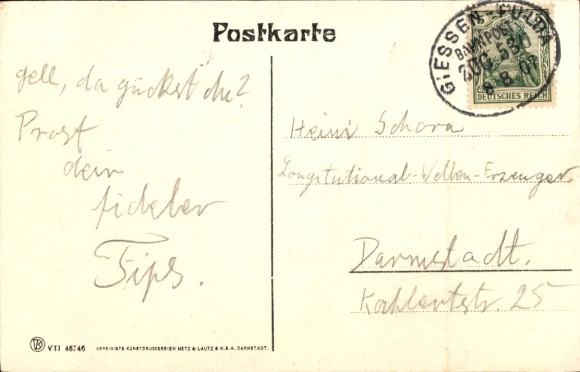 Postkarte
gell, da guckst du?
Prost
dein
fideler
Fips.
GIESSEN-FULDA
BAHNPOST
ZUG 530
8.8.07
DEUTSCHES REICH
Heini Schora
Longitutional-Wellen-Erzeuger
Darmstadt.
25
VII 46746
VEREINIGTE KUNSTDRUCKEREIEN METZ & LAUTZ G.M.B.H. DARMSTADT.